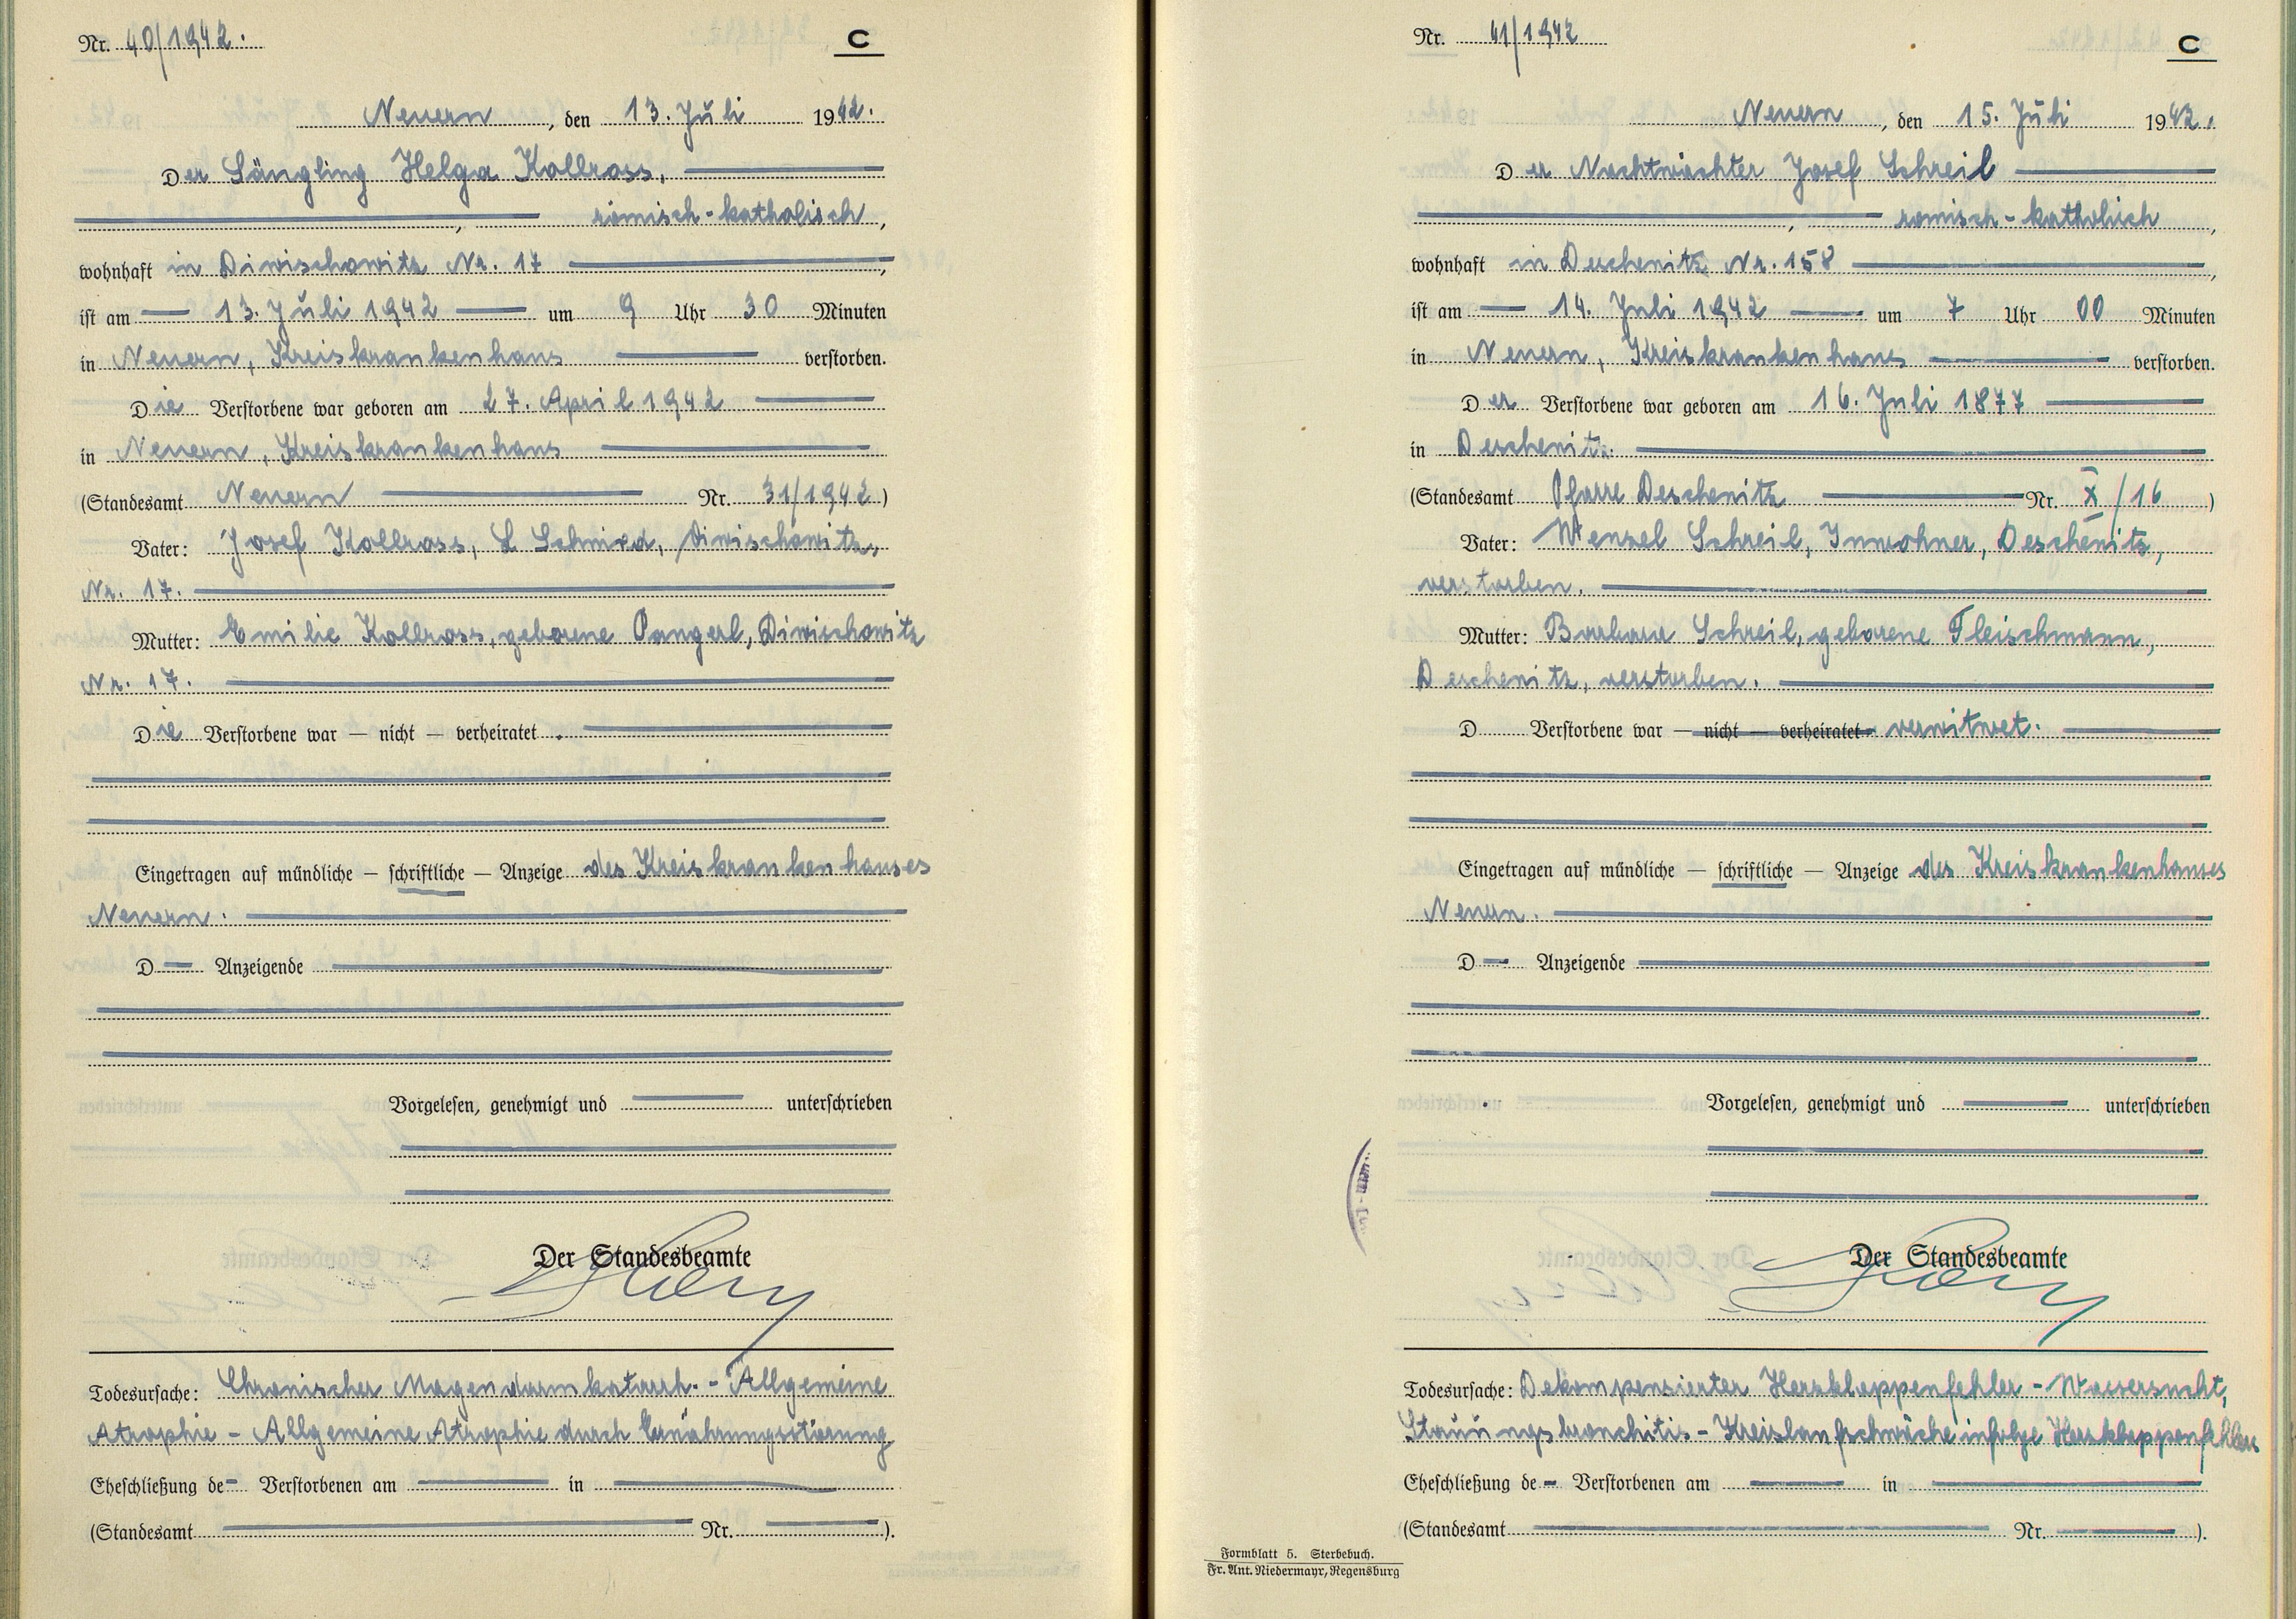 Nr. 40/1942.
C
Neuern, den 13. Juli 1942.
Der Säugling Helga Kollross,
römisch-katholisch,
wohnhaft in Diwischowitz Nr. 17,
ist am 13. Juli 1942 um 9 Uhr 30 Minuten
in Neuern, Kreiskrankenhaus verstorben.
Die Verstorbene war geboren am 27. April 1942
in Neuern, Kreiskrankenhaus
(Standesamt Neuern Nr. 31/1942)
Vater: Josef Kollross, Schmied, Diwischowitz,
Nr. 17.
Mutter: Emilie Kollross, geborene Pangerl, Diwischowitz
Nr. 17.
Die Verstorbene war — nicht — verheiratet.
Eingetragen auf mündliche — schriftliche — Anzeige des Kreiskrankenhauses
Neuern.
D Anzeigende
Vorgelesen, genehmigt und unterschrieben
Der Standesbeamte
Todesursache: Chronischer Magendarmkatarrh. - Allgemeine
Atrophie - Allgemeine Atrophie durch Ernährungsstörung
Eheschließung de Verstorbenen am in
(Standesamt Nr. ).
Nr. 41/1942
C
Neuern, den 15. Juli 1942.
Der Nachtwächter Josef Schreil
, römisch-katholisch,
wohnhaft in Deschenitz Nr. 158,
ist am 14. Juli 1942 um 7 Uhr 00 Minuten
in Neuern, Kreiskrankenhaus verstorben.
Der Verstorbene war geboren am 16. Juli 1877
in Deschenitz.
(Standesamt Pfarre Deschenitz Nr. X/16)
Vater: Wenzel Schreil, Inwohner, Deschenitz,
verstorben.
Mutter: Barbara Schreil, geborene Fleischmann,
Deschenitz, verstorben.
D Verstorbene war — nicht — verheiratet verwitwet.
Eingetragen auf mündliche — schriftliche — Anzeige des Kreiskrankenhauses
Neuern.
D Anzeigende
Vorgelesen, genehmigt und unterschrieben
Der Standesbeamte
Todesursache: Dekompensierter Herzklappenfehler - Wassersucht,
Stauungsbronchitis - Kreislaufschwäche infolge Herzklappenfehlers
Eheschließung de Verstorbenen am in
(Standesamt Nr. ).
Formblatt 5. Sterbebuch.
Fr. Ant. Niedermayr, Regensburg